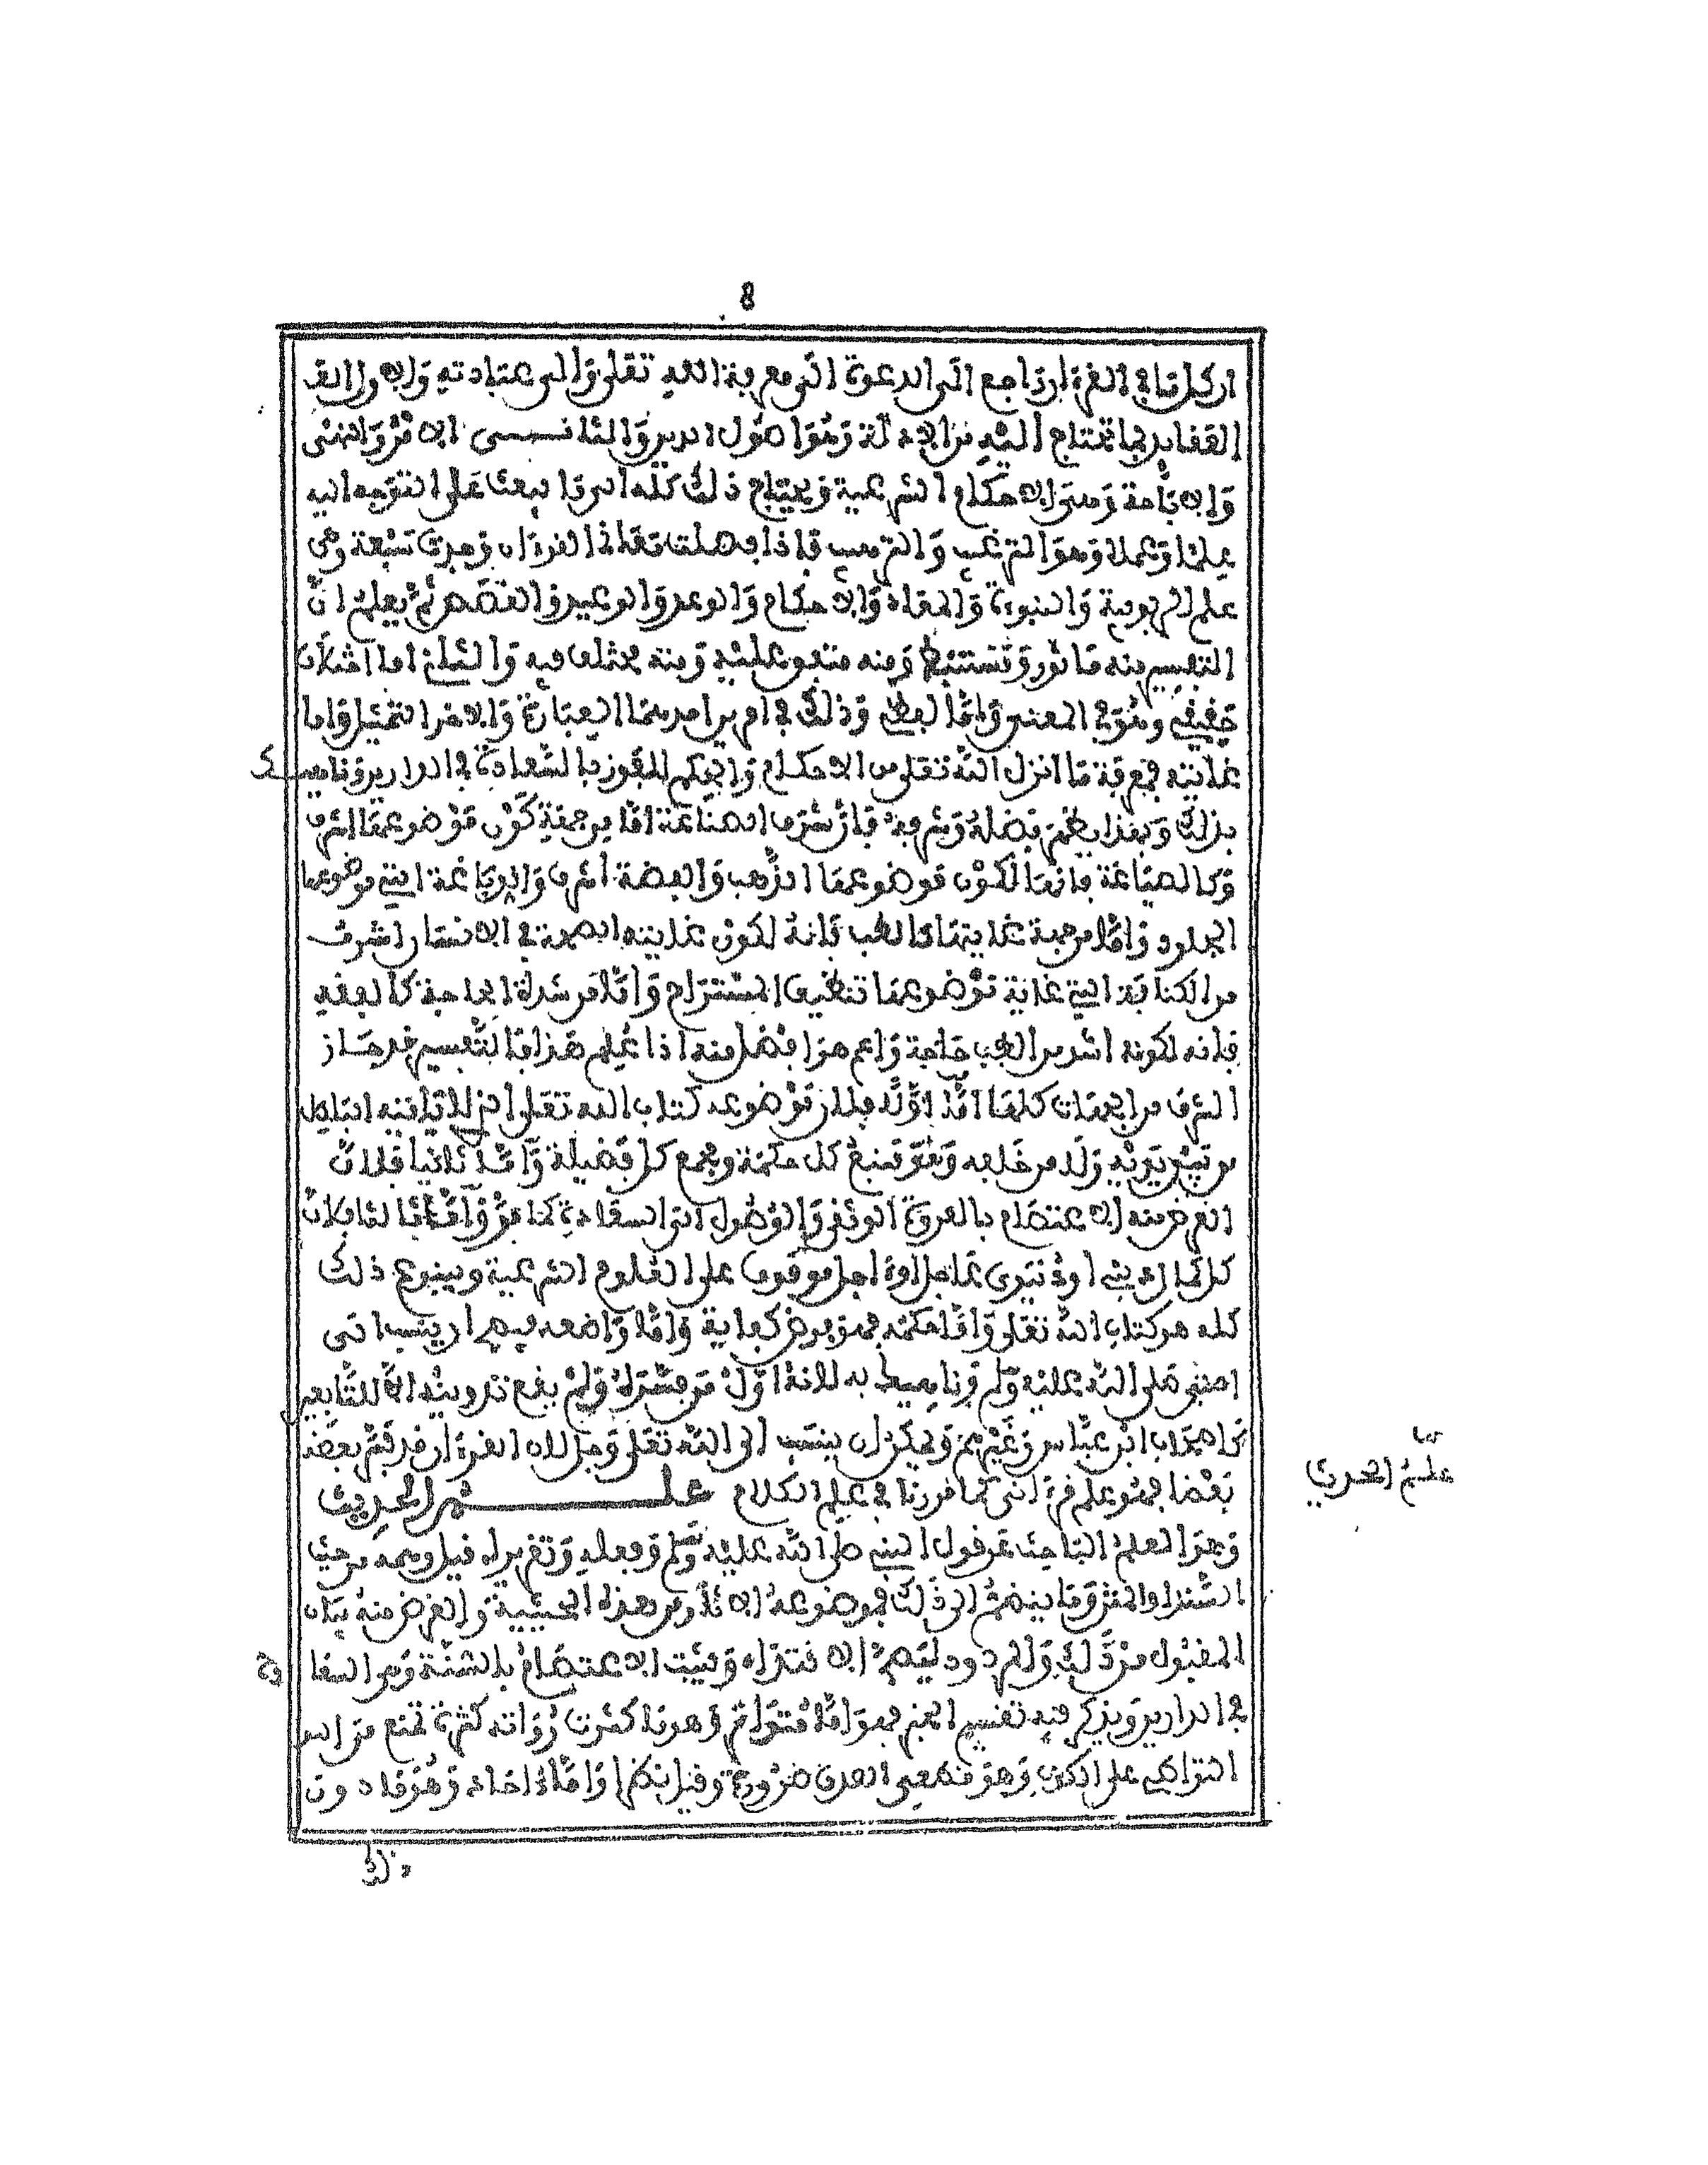 8
ان كل ما في القرءان راجع الى الدعوة الى معرفة الله تعلى والى عبادته والاول العقـ
العقايد بما تحتاج اليه من الادلة وهو اصول الدين والثانـــي الامر والنهي
والاباحة وهي الاحكام الشرعية ويحتاج ذلك كله الى ما يبعث على التوجه اليه
علما وعملا وهو الترغيب والترهيب فاذا فصلت مقاصد القرءان وجدت سبعة وهي
علم الربوبية والنبوة والمعاد والاحكام والوعد والوعيد والقصص ثم يعلم ان
التفسير منه ماثور ومستنبط ومنه متفق عليه ومنه مختلف فيه والشان اما اختلاف
حقيقي وهو في المعنى واما لفظي وذلك في امرين احدهما العبارة والاخر التمثيل واما
غايته فمعرفة ما انزل الله تعلى من الاحكام والحكم للفوز بالسعادة في الدارين وناهيـــك
بذلك وبهذا يعلم فضله وشرفه فان شرف الصناعة اما من جهة كون موضوعها اشرف
وكالصياغة فانها لكون موضوعها الذهب والفضة اشرف والدباغة التي موضوعها
الجلود واما من جهة غايتها كالطب فانه لكون غايته الصحة في الانسان اشرف
من الكناسة التي غاية موضوعها تنظيف المستراح واما من شدة الحاجة كالفقه
فانه لكونه اشد من الطب حاجة واعم هو افضل منه اذا علم هذا فالتفسير قد حـاز
الشرف من الجهات كلها اما اولا فلان موضوعه كتاب الله تعلى الذي لا ياتيه الباطل
من بين يديه ولا من خلفه وهو منبع كل حكمة ومجمع كل فضيلة واما ثانيا فلان
الغرض منه الاعتصام بالعروة الوثقى والوصول الى السعادة كما مر واما ثالثا فلان
كل كمال ديني او دنيوي عاجل او اجل موقوف على العلوم الشرعية وينبوع ذلك
كله هو كتاب الله تعلى واما حكمه فهو فرض كفاية واما واضعه فيصح ان ينسب الى
النبي صلى الله عليه وسلم به لانه اول من فسره ولم يقع تدوينه الا للتابعين
كاصحاب ابن عباس وغيرهم ويمكن ان ينسب الى الله تعلى وجل لان القرءان قد فسر بعضه
بعضا فهو علم قرءاني كما قررنا في علم الكلام علــــــــــم الحديث
وهو العلم الباحث عن قول النبي صلى الله عليه وسلم وفعله وتقريره قيل وهمه من حيث
السند او المتن وما ينضم الى ذلك فموضوعه الاثار من هذه الحيثية والغرض منه بيان
المقبول من ذلك والمردود ليصح الاقتداء ويثبت الاعتصام بالسنة وهي السعادة
في الدارين ويذكر فيه تقسيم الخبر فهو اما متواتر وهو ما كثرت رواته كثرة تمنع من
التواطي على الكذب وهو مقتضي الصدق ضرورة وقيل نظرا واما احاد وهو ما دون
علم الحديث